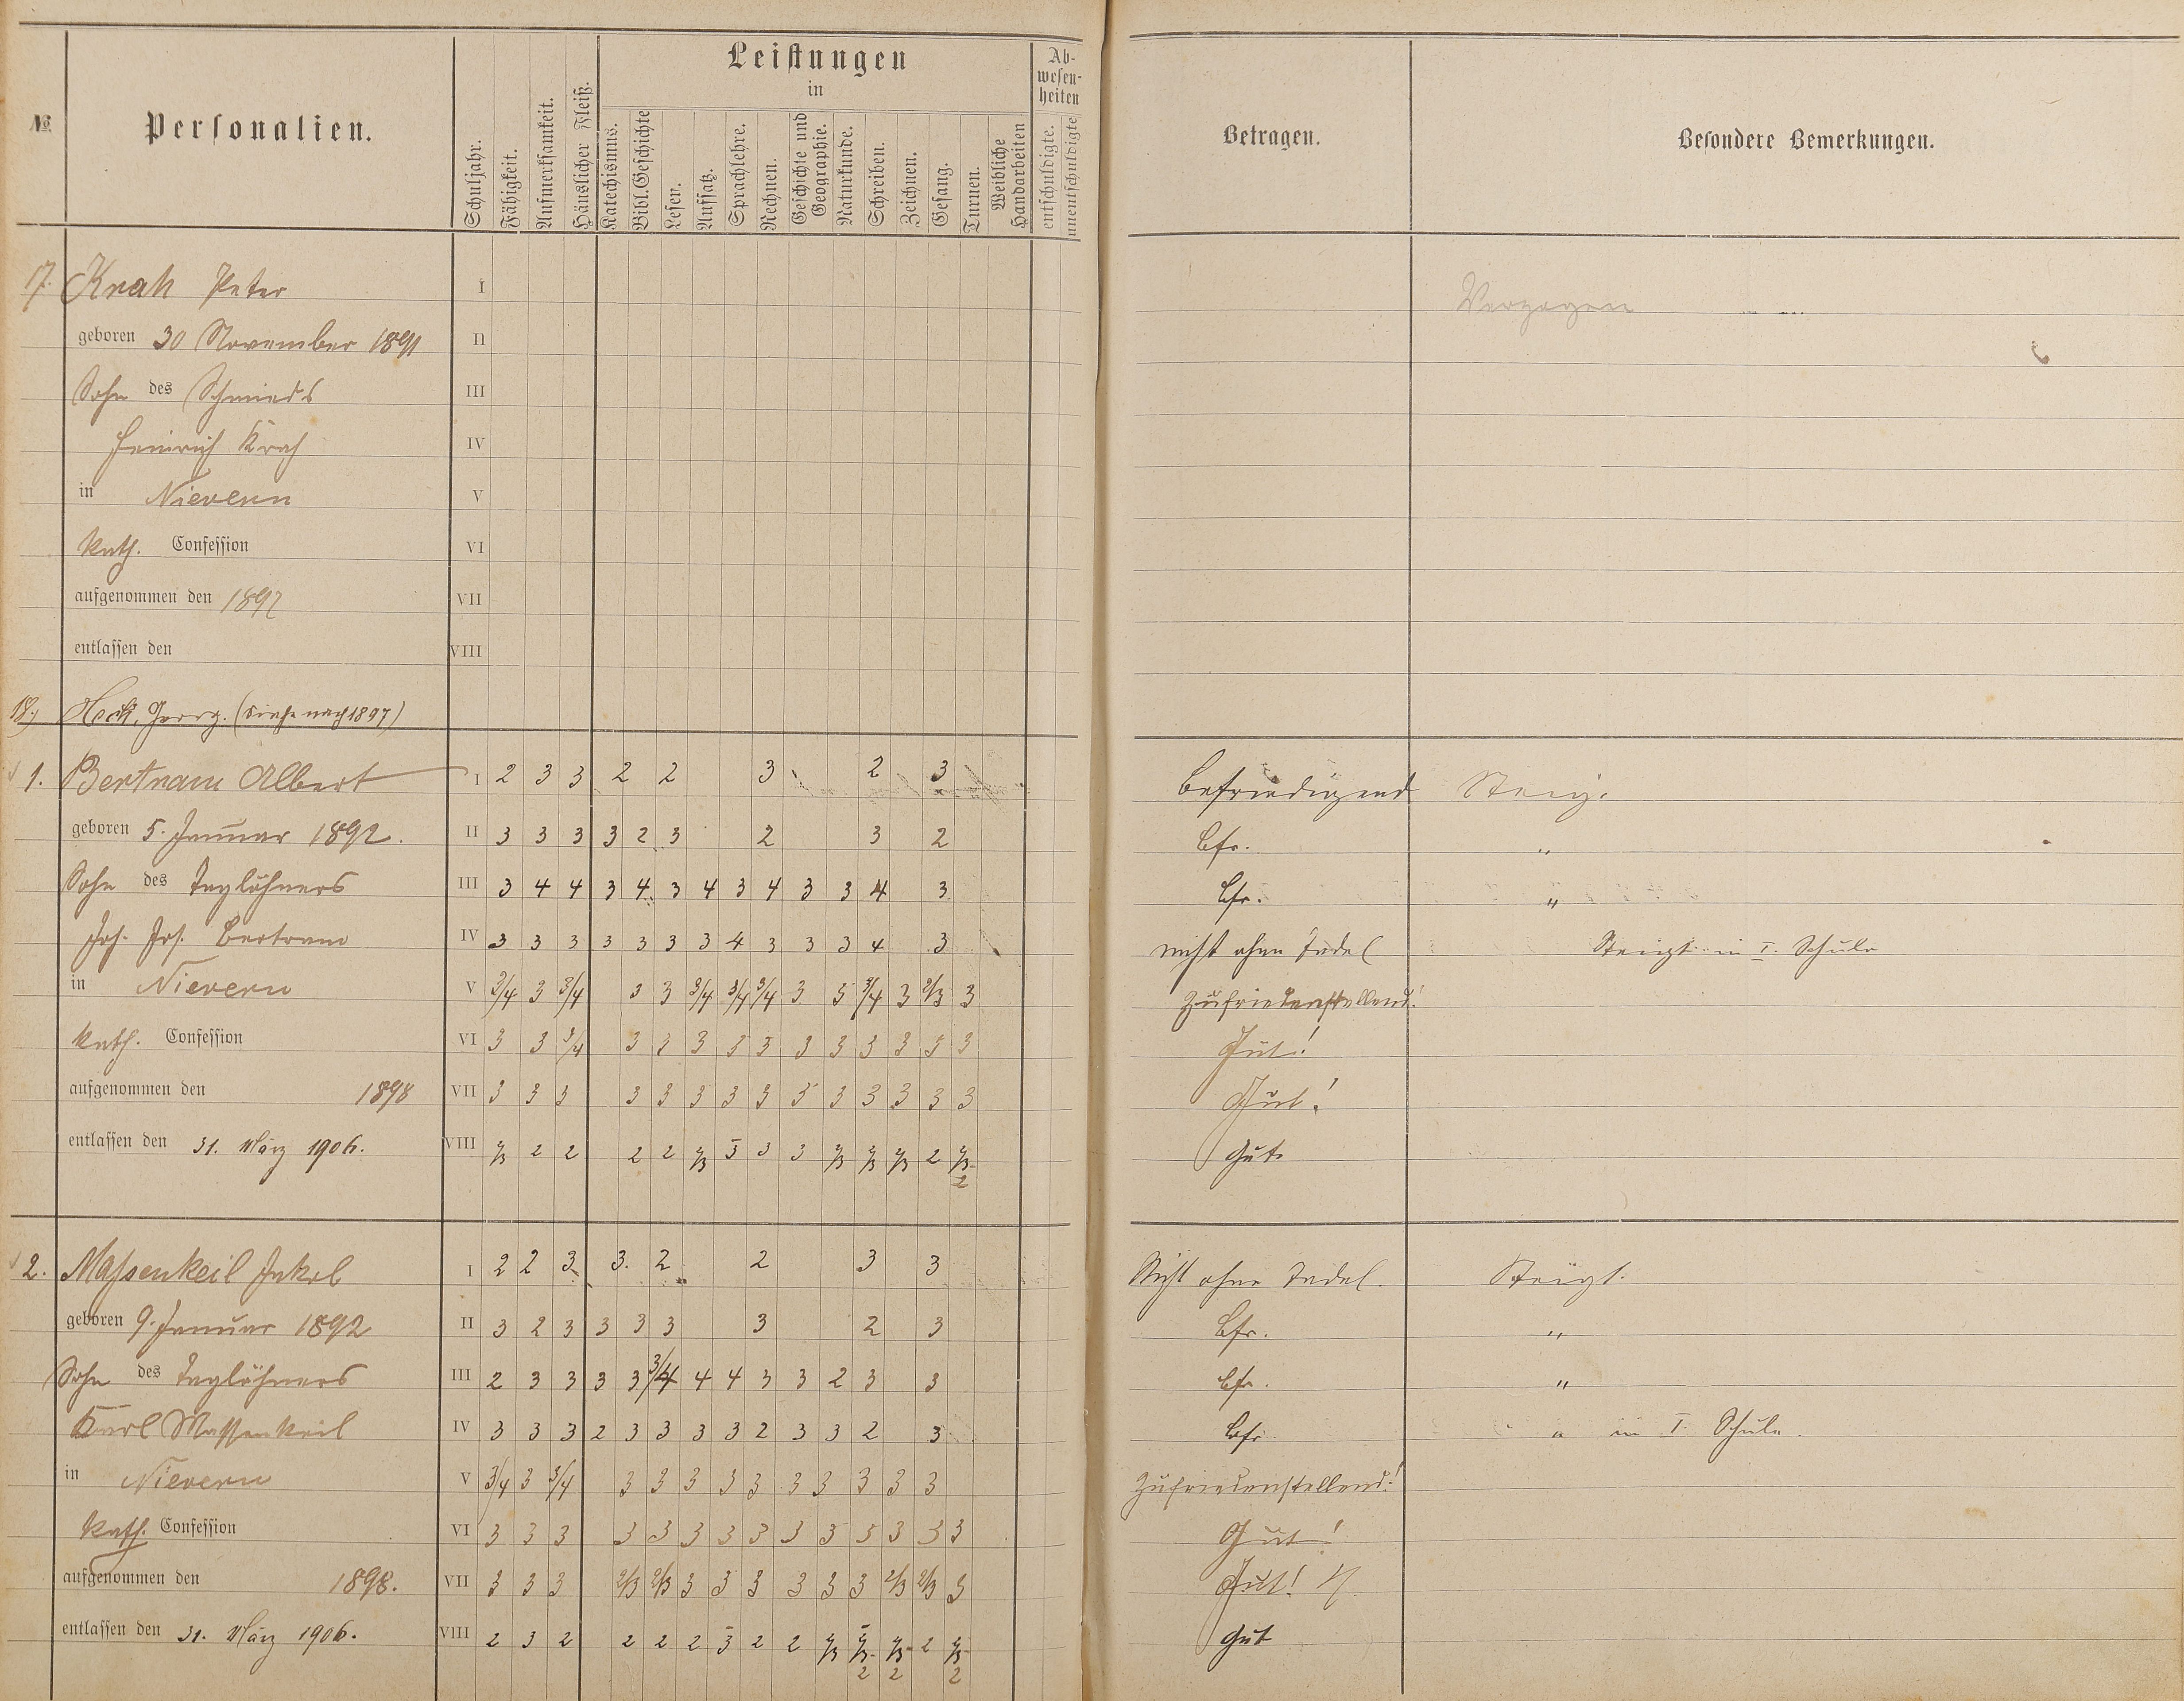 №
Personalien.
Schuljahr.
Fähigkeit.
Aufmerksamkeit.
Häuslicher Fleiß.
Leistungen
in
Katechismus.
Bibl. Geschichte
Lesen.
Aufsatz.
Sprachlehre.
Rechnen.
Geschichte und
Geographie.
Naturkunde.
Schreiben.
Zeichnen.
Gesang.
Turnen.
Weibliche
Handarbeiten
Ab-
wesen-
heiten
entschuldigte.
unentschuldigte
Betragen.
Besondere Bemerkungen.
17. Krah Peter I Verzogen
geboren 30 November 1891 II
Sohn des Schmieds III
Heinrich Krah IV
in Nievern V
kath. Confession VI
aufgenommen den 1897 VII
entlassen den VIII
18.) Heck, Georg. (siehe nach 1897)
1. Bertram Albert I 2 3 3 2 2 3 2 3 Befriedigend Steigt.
geboren 5. Januar 1892. II 3 3 3 3 2 3 2 3 2 bfr. "
Sohn des Taglöhners III 3 4 4 3 4 3 4 3 4 3 3 4 3 bfr. "
Joh. Jos. Bertram IV 3 3 3 3 3 3 3 4 3 3 3 4 3 nicht ohne Tadel Steigt in I. Schule
in Nievern V 3/4 3 3/4 3 3 3/4 3/4 3/4 3 3 3/4 3 2/3 3 Zufriedenstellend!
kath. Confession VI 3 3 3/4 3 3 3 3 3 3 3 3 3 3 3 Gut!
aufgenommen den 1898 VII 3 3 3 3 3 3 3 3 3 3 3 3 3 3 Gut!
entlassen den 31. März 1906. VIII 2/3 2 2 2 2 2/3 3 3 3 2/3 2/3 2/3 2 2/3 Gut.
2
2. Massenkeil Jakob I 2 2 3 3. 2 2 3 3 Nicht ohne Tadel. Steigt.
geboren 9. Januar 1892 II 3 2 3 3 3 3 3 2 3 bfr. "
Sohn des Taglöhners III 2 3 3 3 3 3/4 4 4 3 3 2 3 3 bfr. "
Karl Massenkeil IV 3 3 3 2 3 3 3 3 2 3 3 2 3 bfr. " in I. Schule.
in Nievern V 3/4 3 3/4 3 3 3 3 3 3 3 3 3 3 Zufriedenstellend!
kath. Confession VI 3 3 3 3 3 3 3 3 3 3 3 3 3 3 Gut!
aufgenommen den 1898. VII 3 3 3 2/3 2/3 3 3 3 3 3 3 2/3 2/3 3 Gut!
entlassen den 31. März 1906. VIII 2 3 2 2 2 2 3 2 2 2/3 2/3 2/3 2 2/3 Gut
2 2 2